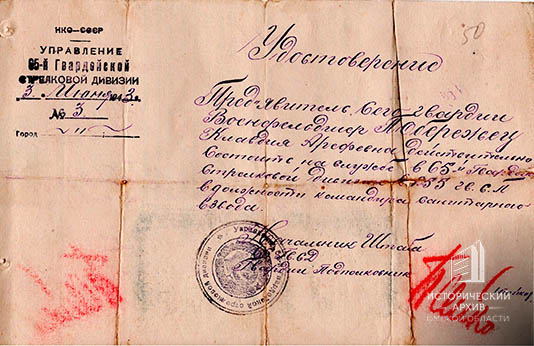 НКО—СССР
УПРАВЛЕНИЕ
65-й Гвардейской
СТРЕЛКОВОЙ ДИВИЗИИ
"3" Июня 1943 г.
№ 3
Город
50
Удостоверение
Предъявитель сего гвардии
Военфельдшер
Клавдия Арефевна действительно
Состоит на службе в 65й Гвард.
Стрелковой дивизии в 255 гв. с.п
в должности командира санитарного
взвода.
Начальник Штаба
Подполковник
ИСТОРИЧЕСКИЙ
АРХИВ
ОМСКОЙ ОБЛАСТИ